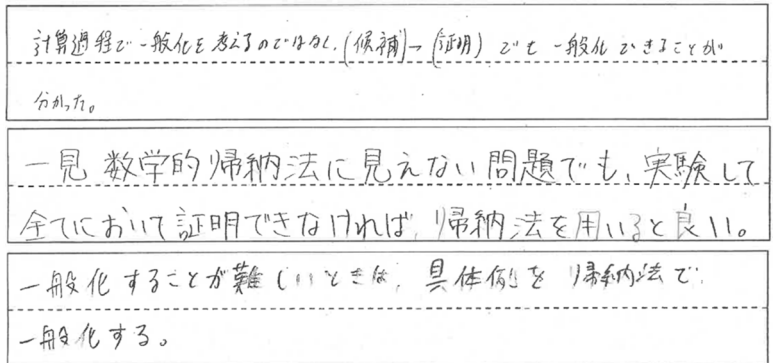 計算過程で一般化を考えるのではなく、(候補)→(証明)でも一般化できることが
分かった。
一見数学的帰納法に見えない問題でも、実験して
全てにおいて証明できなければ、帰納法を用いると良い。
一般化することが難しいときは、具体例を帰納法で
一般化する。